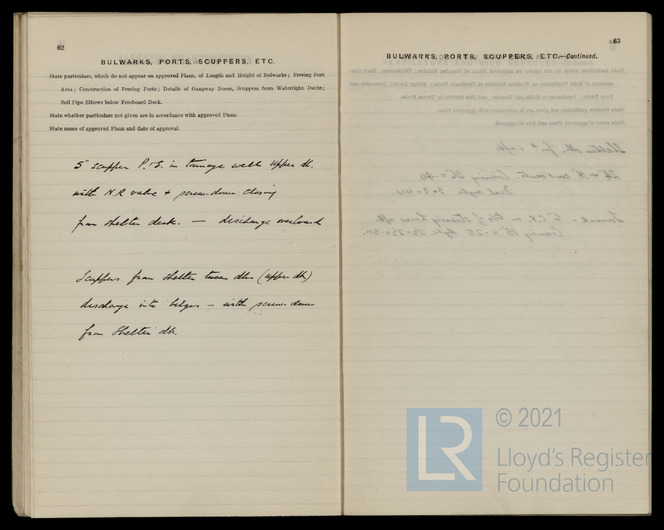 62
BULWARKS, PORTS, SCUPPERS, ETC.
State particulars, which do not appear on approved Plans, of Length and Height of Bulwarks; Freeing Port
Area; Construction of Freeing Ports; Details of Gangway Doors, Scuppers from Watertight Decks;
Soil Pipe Elbows below Freeboard Deck.
State whether particulars not given are in accordance with approved Plans.
State name of approved Plans and date of approval.
5" scupper P. & S. in tonnage well upper dk.
with N.R valve & screw-down closing
from shelter deck. — discharge overboard
Scuppers from shelter tween dks (upper dk)
discharge into bilges — with screw-down
from Shelter dk.
63
BULWARKS, PORTS, SCUPPERS, ETC.—Continued.
© 2021
LR
Lloyd's Register
Foundation